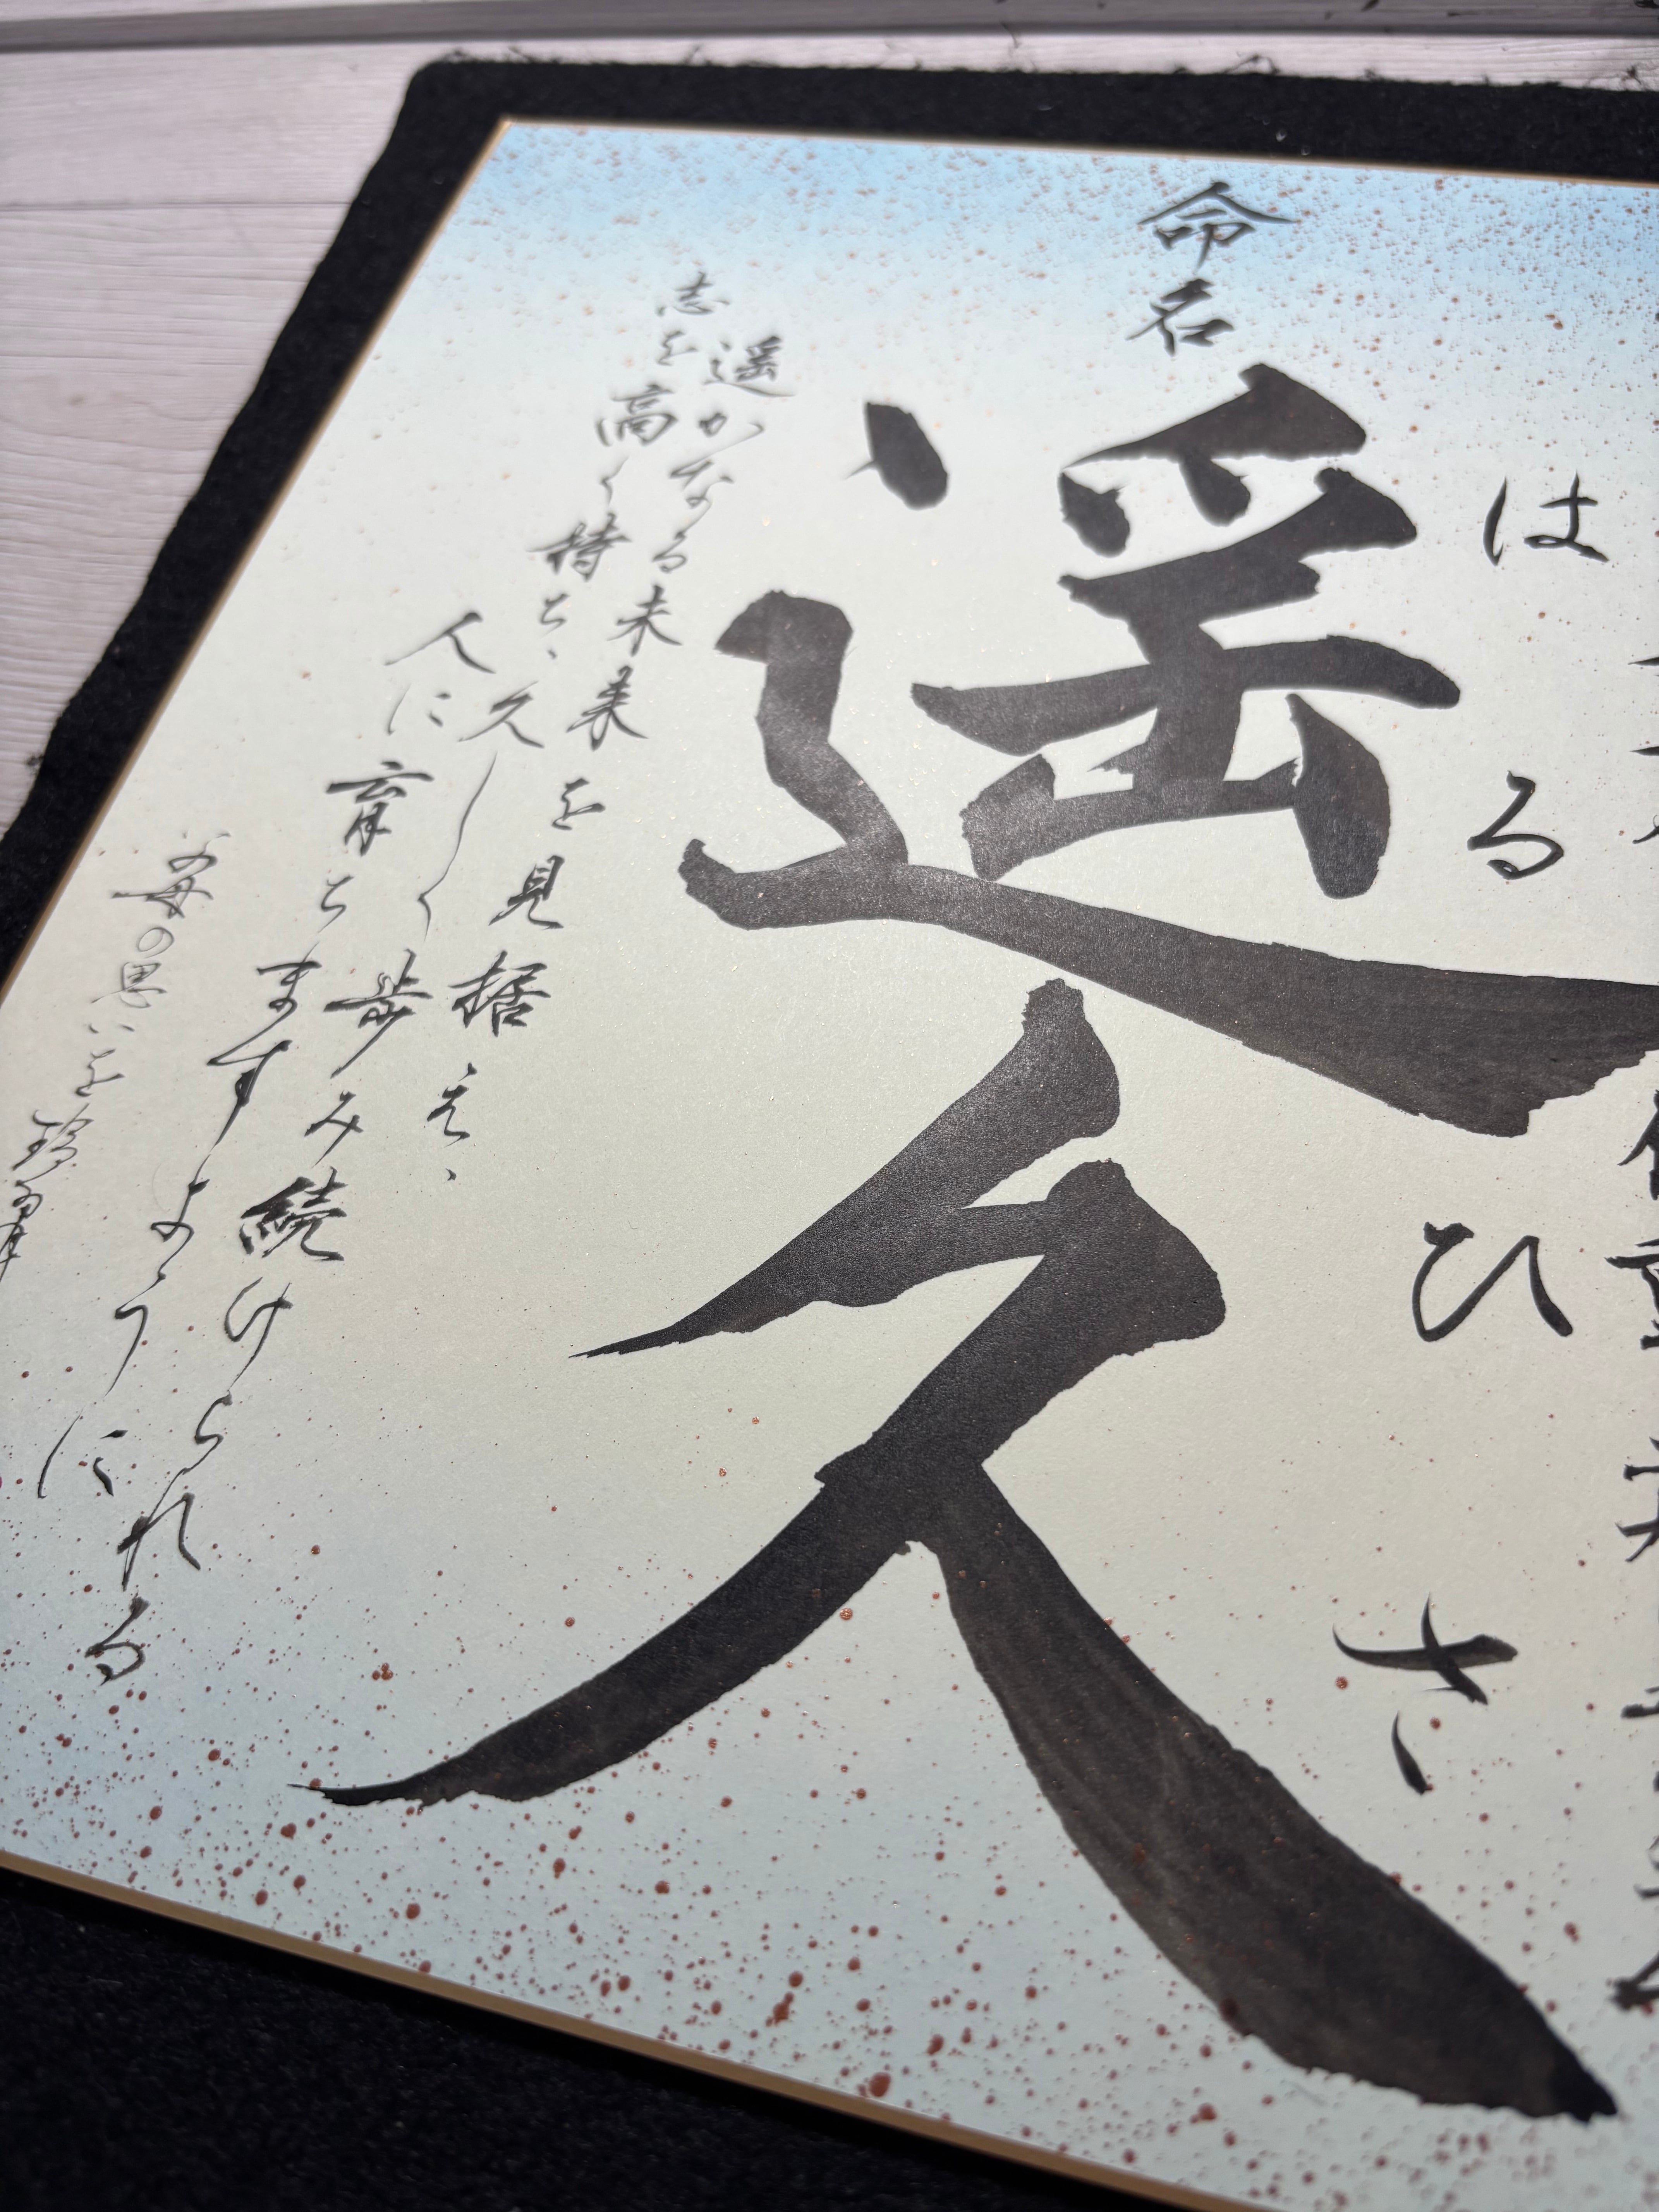 はるひさ
命名
遥久
遥かなる未来を見据え、
志を高く持ち、久しく歩み続けられる
人に育ちますように
父母の思いを